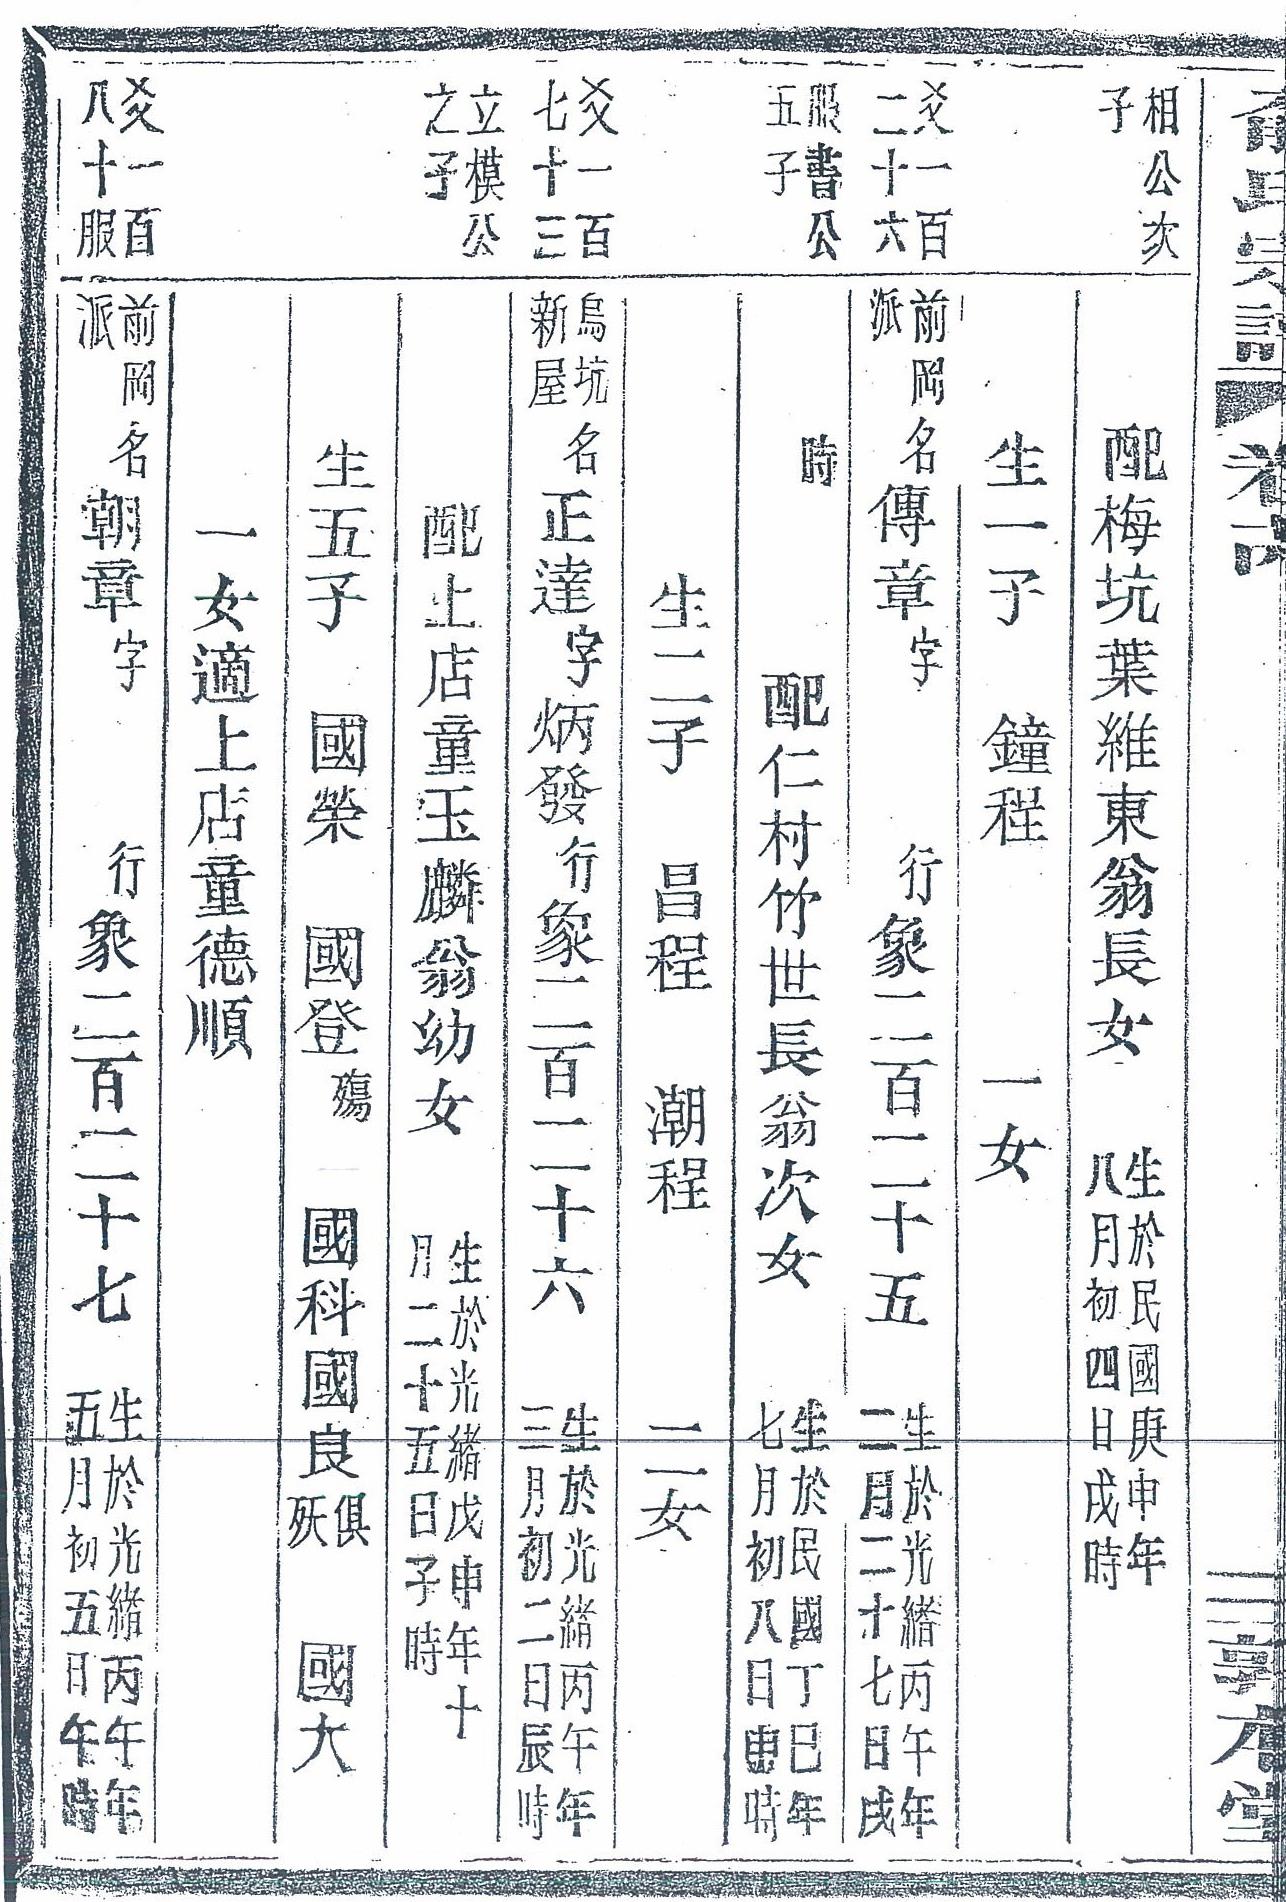 相公次
子
配梅坑葉維東翁長女
生於民國庚申年
八月初四日戌時
生一子　鐘程　一女
爻一百
二十六
前岡
派
名傳章字　行象二百二十五
生於光緒丙午年
二月二十七日戌
時
服書公
五子
配仁村竹世長翁次女
生於民國丁巳年
七月初八日申時
生二子　昌程　潮程　二女
爻一百
七十三
烏坑
新屋
名正達字炳發行象二百二十六
生於光緒丙午年
三月初二日辰時
立模公
之子
配上店童玉麟翁幼女
生於光緒戊申年十
月二十五日子時
生五子　國榮　國登殤　國科國良俱殀　國大
一女適上店童德順
爻一百
八十服
前岡
派
名朝章字　行象二百二十七
生於光緒丙午年
五月初五日午時